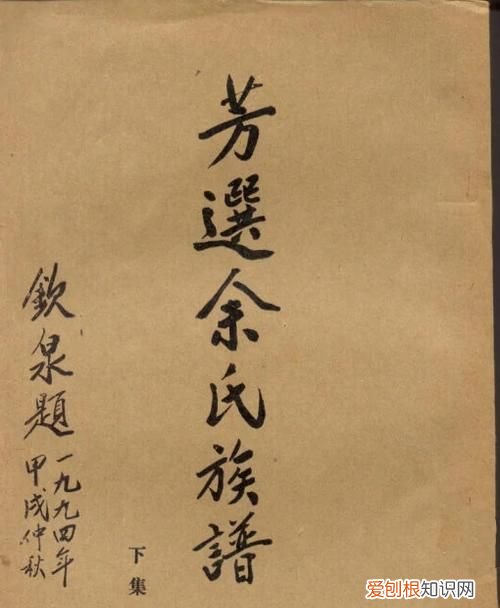 芳選余氏族譜
欽泉題
一九九四年
甲戌仲秋
下集
爱刨根知识网
www.baogen.com